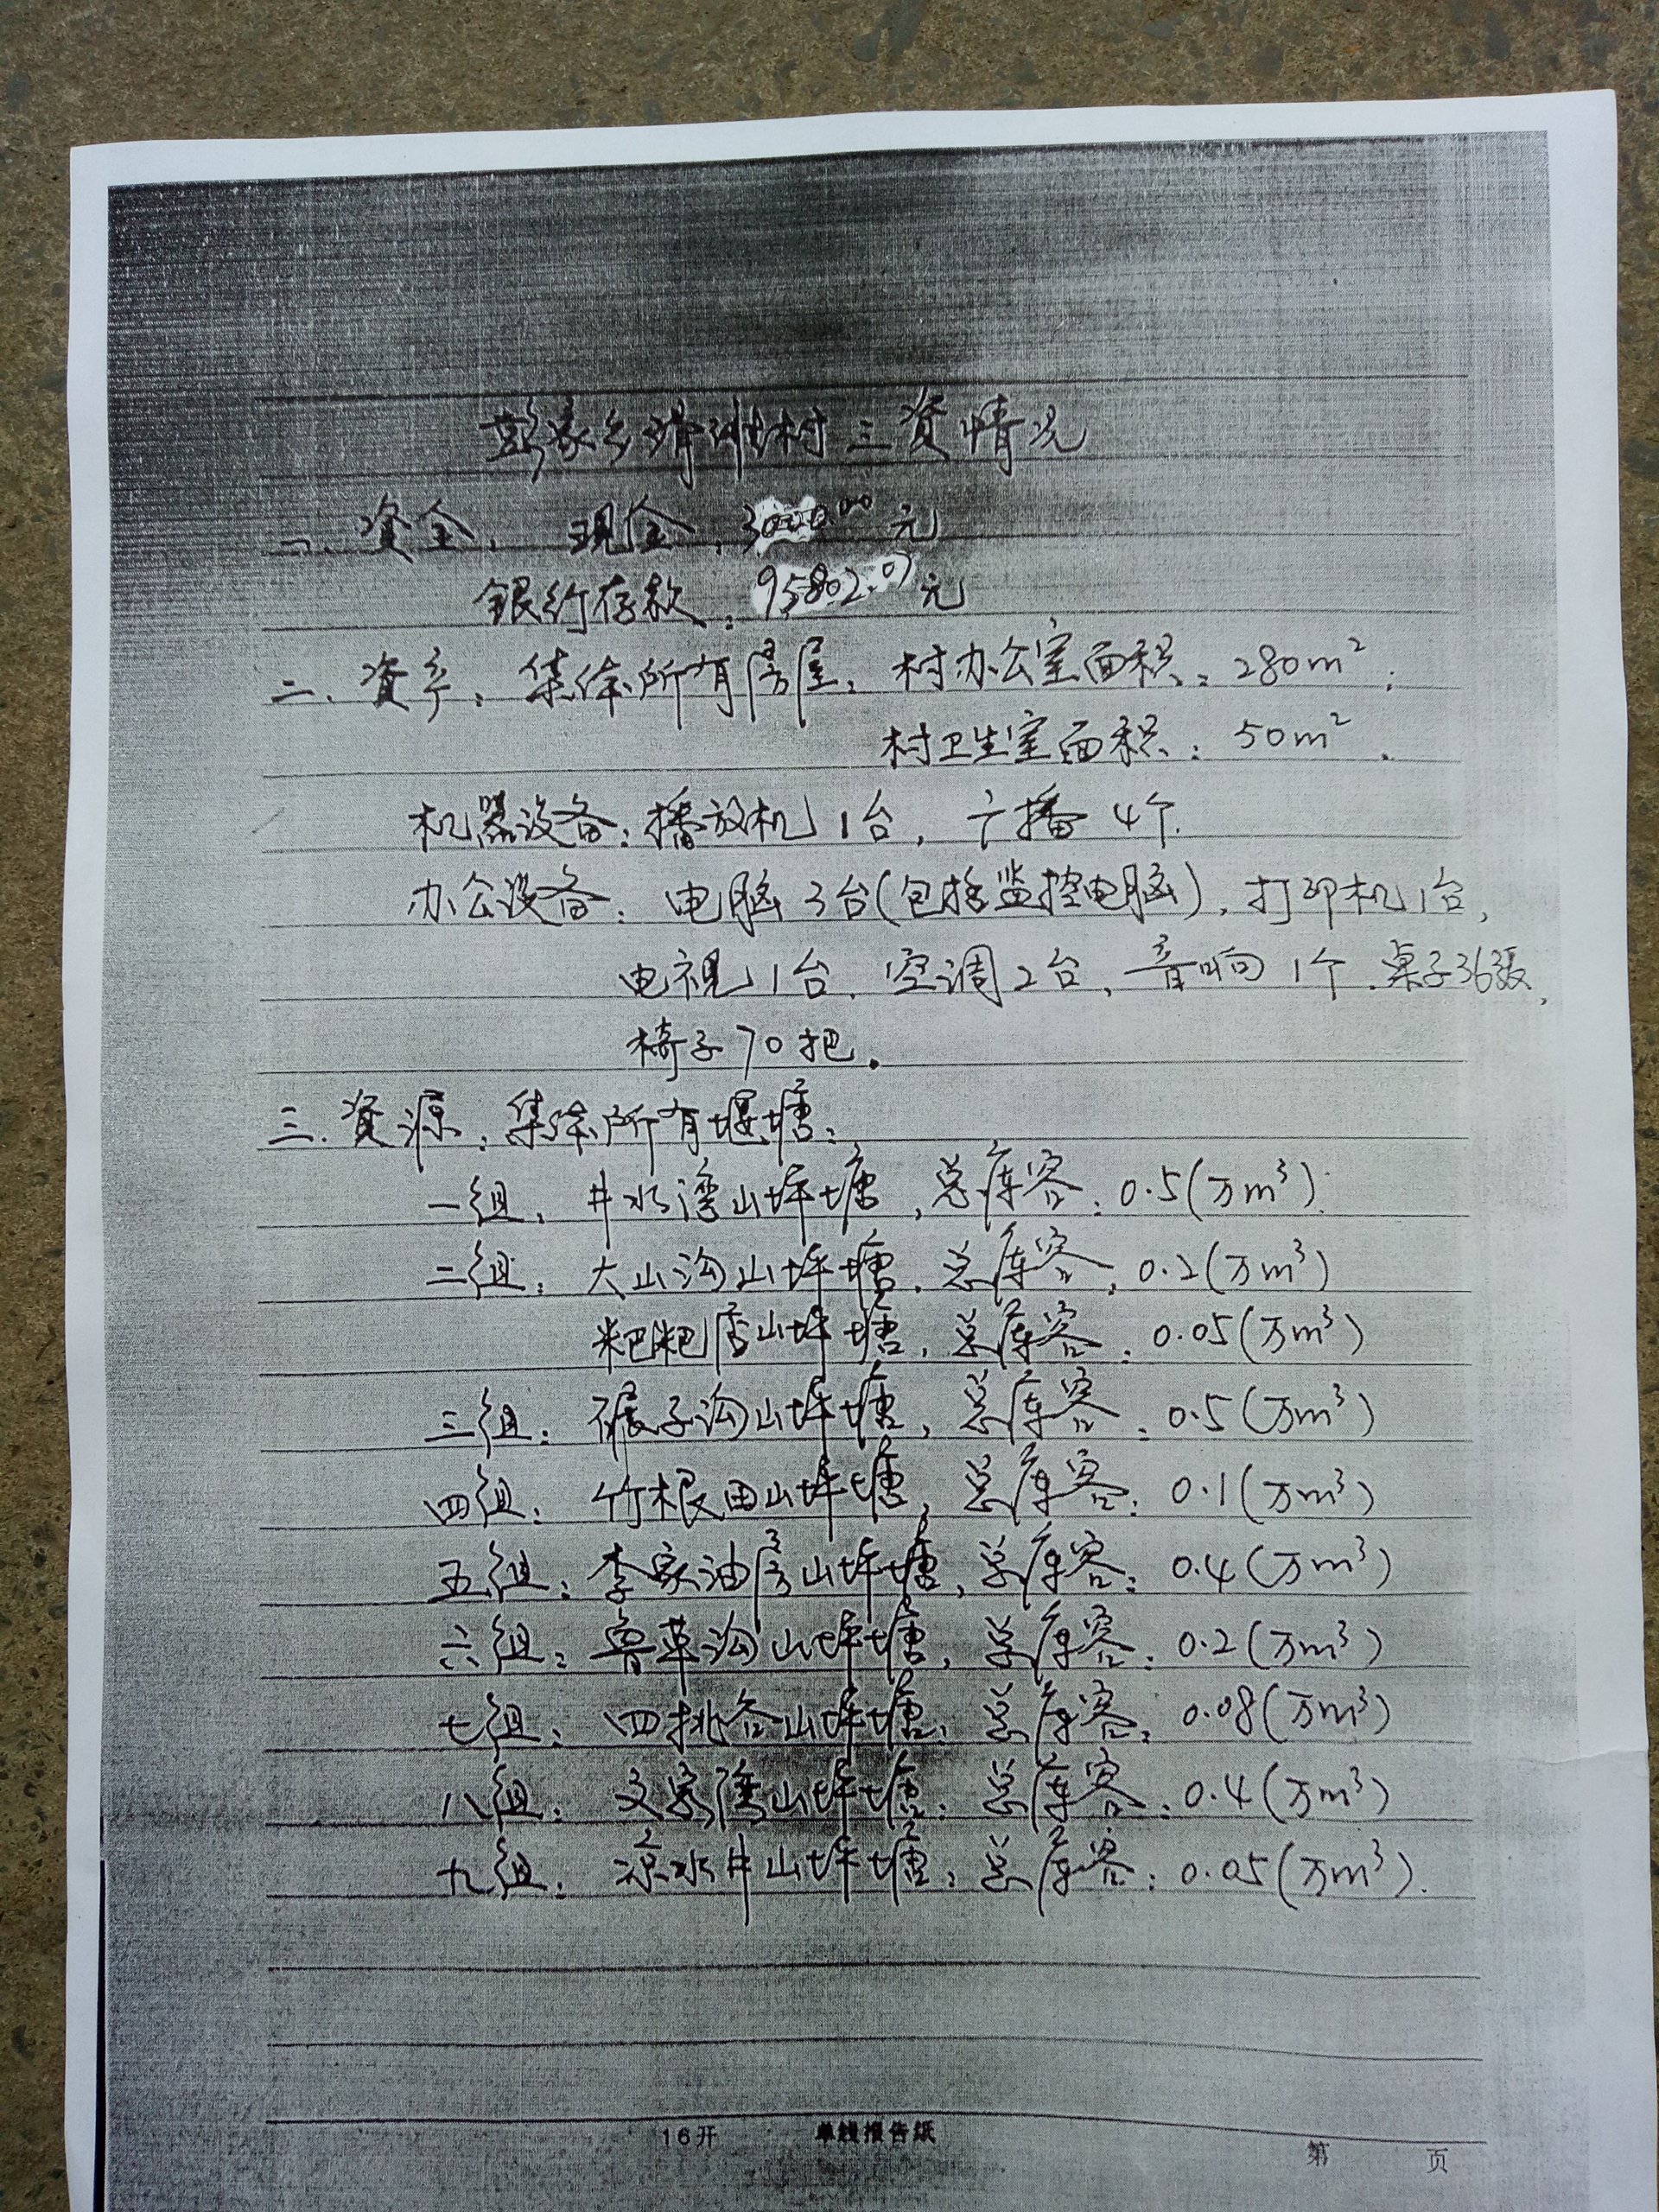 彭家乡 村三资情况
一、资金: 现金: 元
银行存款: 95802.07元
二、资产: 集体所有房屋: 村办公室面积: 280m²;
村卫生室面积: 50m².
机器设备: 播放机1台, 广播4个.
办公设备: 电脑3台(包括监控电脑), 打印机1台,
电视1台, 空调2台, 音响1个, 桌子36张,
椅子70把.
三、资源: 集体所有堰塘:
一组: 井水湾山坪塘, 总库容: 0.5(万m³).
二组: 大山沟山坪塘, 总库容: 0.2(万m³)
粑粑店山坪塘, 总库容: 0.05(万m³)
三组: 碾子沟山坪塘, 总库容: 0.5(万m³)
四组: 竹根田山坪塘, 总库容: 0.1(万m³)
五组: 李家油房山坪塘, 总库容: 0.4(万m³)
六组: 鲁草沟山坪塘, 总库容: 0.2(万m³)
七组: 四挑谷山坪塘: 总库容: 0.08(万m³)
八组: 文家湾山坪塘: 总库容: 0.4(万m³)
九组: 凉水井山坪塘: 总库容: 0.05(万m³).
16开 单线报告纸 第 页